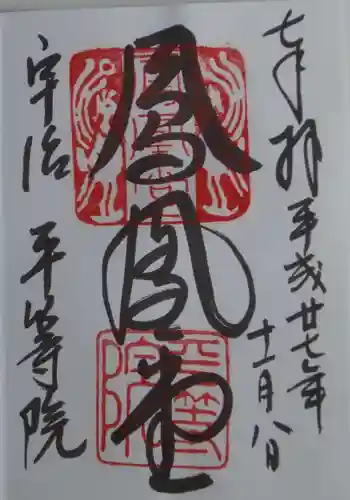 奉拝
平成廿七年
十一月八日
鳳凰堂
宇治 平等院